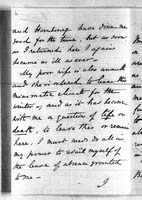 and Homburg have done me
good for the time, but as soon
as I returned here I again
became as ill as ever.
My poor wife is also unwell
and she is ordered to leave the
miasmatic climate for the
winter, and as it has become
with me a question of life or
death, to leave this or remain
here, I must needs do all in
my power to avail myself of
the leave of absence granted
to me —
I